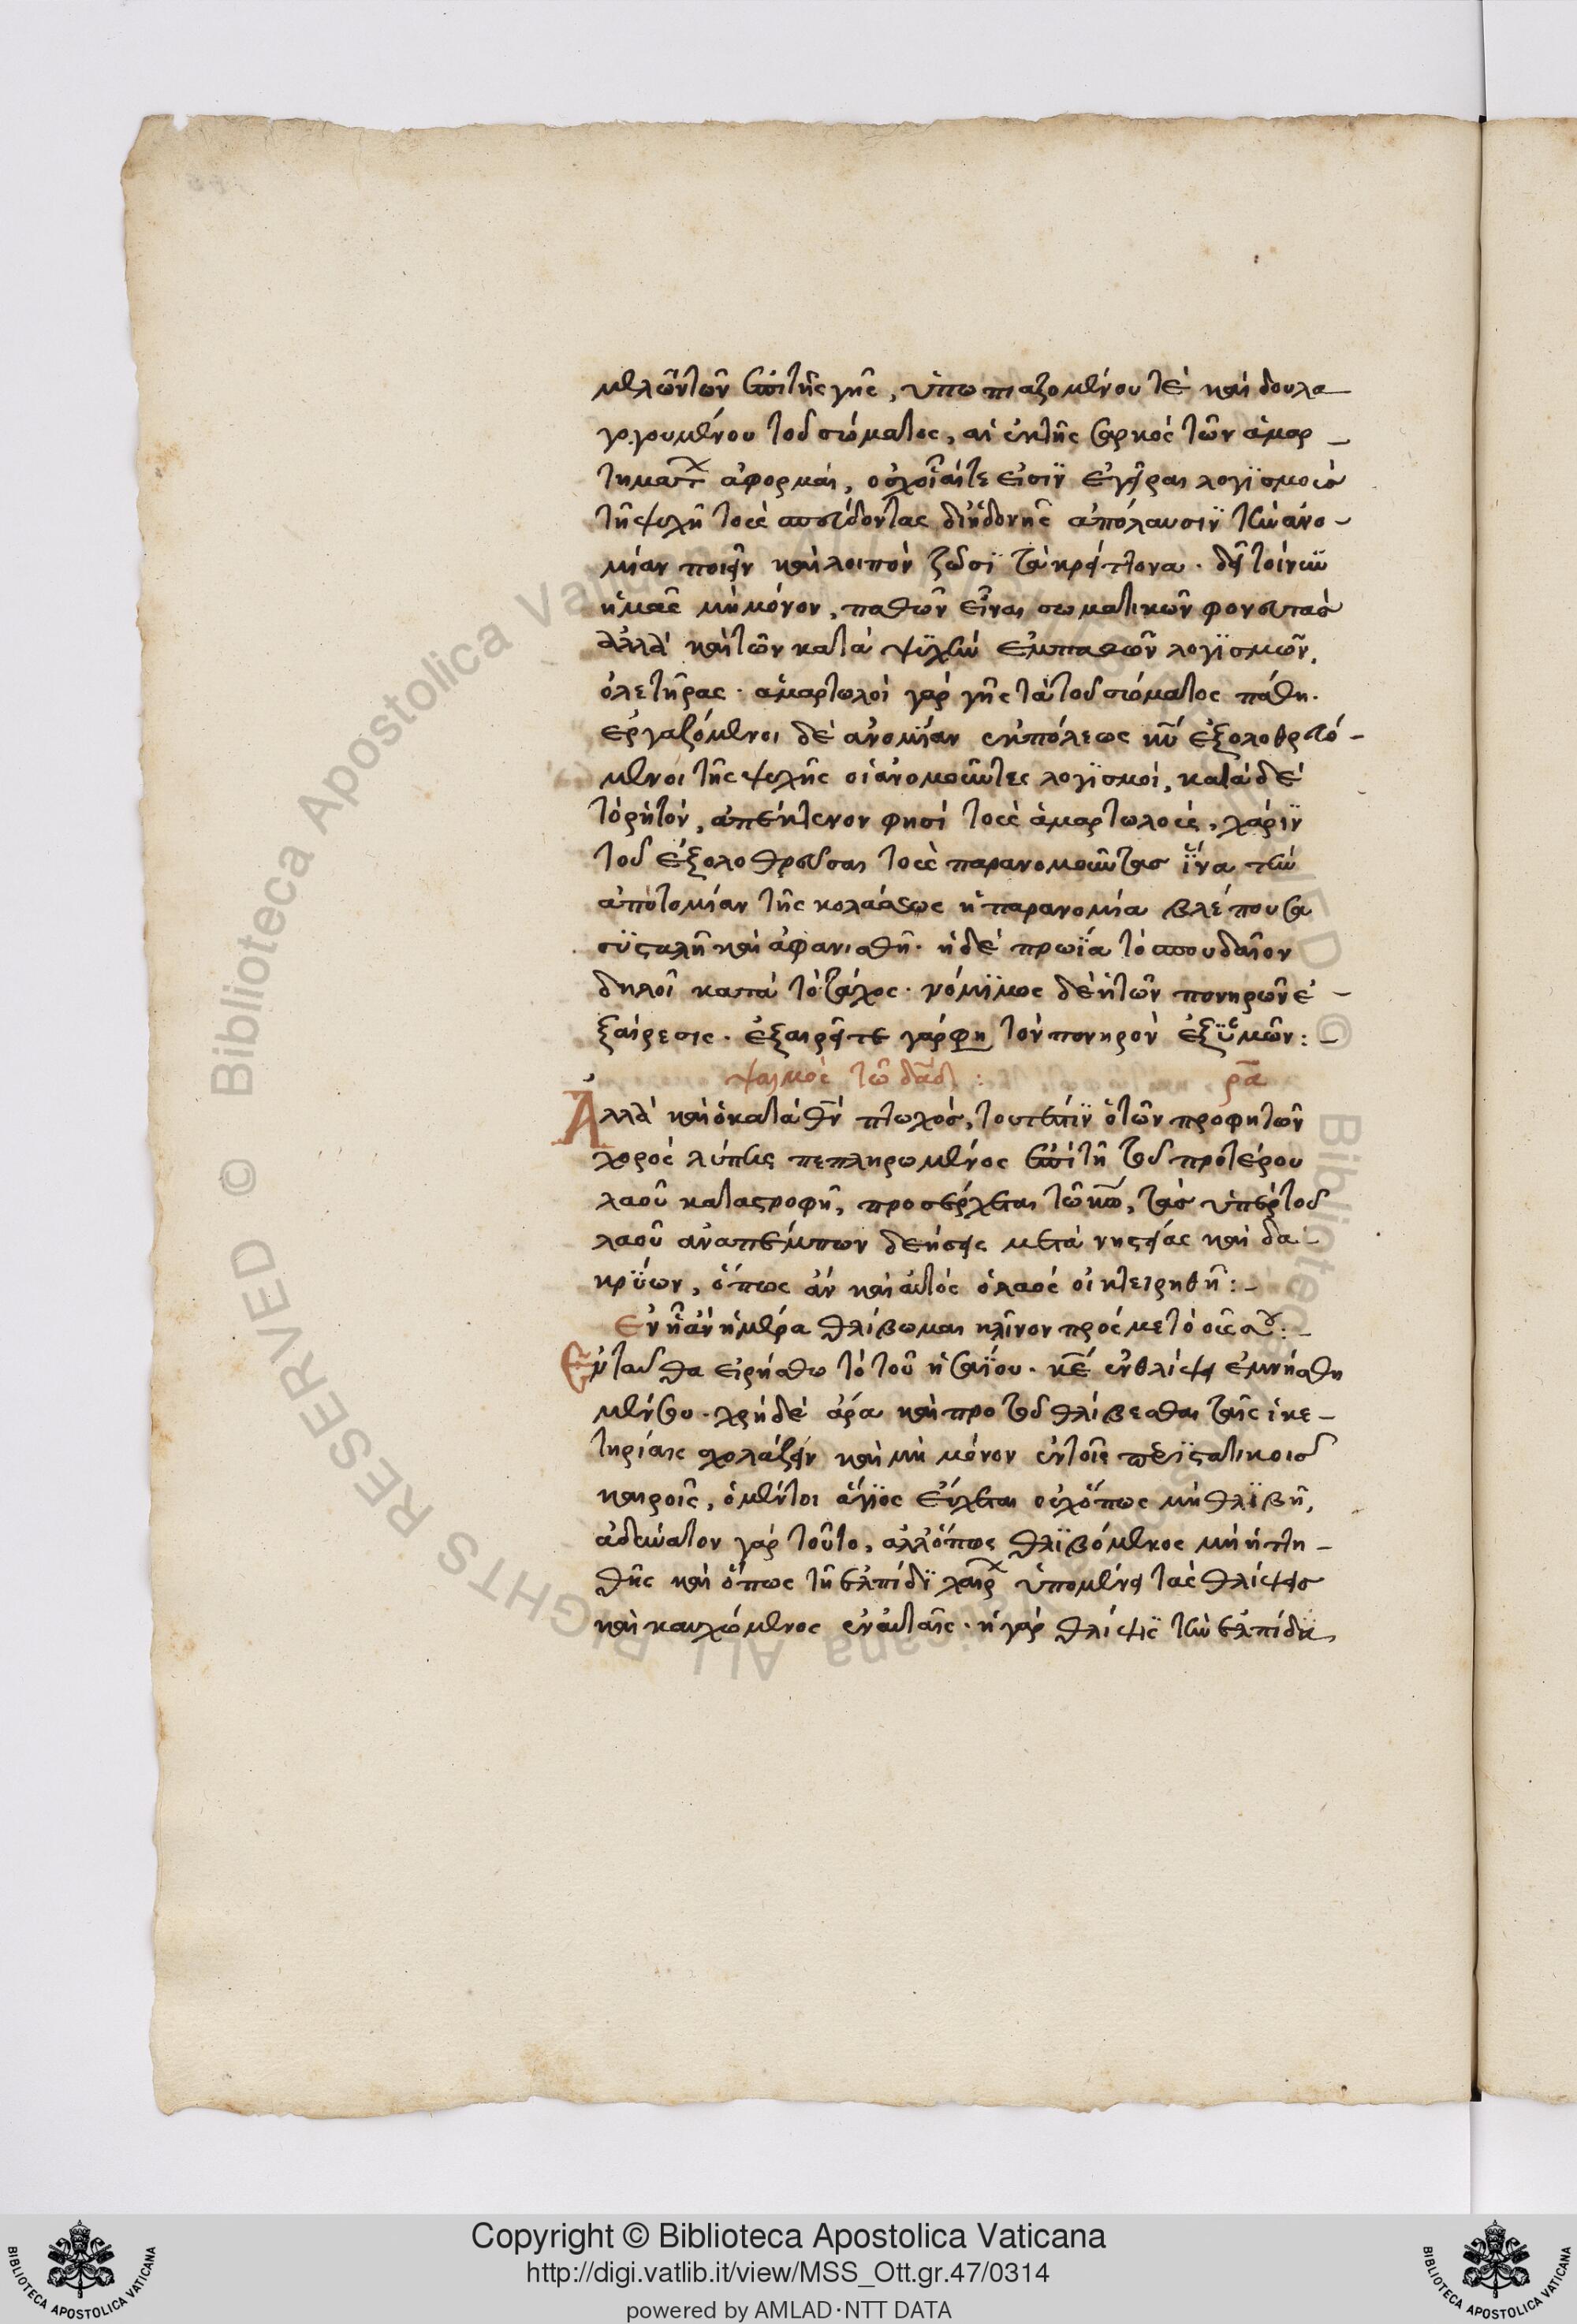 μελῶν τῶν ἐπὶ τῆς γῆς, ὑπωπιαζομένου τὲ καὶ δουλα
γωγουμένου τοῦ σώματος, αἱ ἐκ τῆς σαρκὸς τῶν ἁμαρ
τημάτ ἀφορμαὶ, οὐχ οἷαί τε εἰσῒν ἐγεῖραι λογϊσμοὺσ
τῇ ψυχῇ τοὺς σπεύδοντας δι ἡδονῆς ἀπόλαυσιν τὴν ἀνο
μίαν ποιεῖν καὶ λοιπὸν ζῶσϊ τὰ κρείττονα. δεῖ τοίνυν
ἡμᾶς μὴ μόνον, παθῶν εἶναι σωματικῶν φονευτὰσ
ἀλλὰ καὶ τῶν κατὰ ψϋχὴν ἐμπαθῶν λογϊσμῶν,
ὀλετῆρας. ἁμαρτωλοὶ γὰρ γῆς τὰ τοῦ σώματος πάθη.
ἐργαζόμενοι δὲ ἀνομΐαν ἐκ πόλεως κυ ἐξολοθρευό
μενοι τῆς ψυχῆς οἱ ἀνομοῦντες λογϊσμοί, κατὰ δὲ
τὸ ῥητὸν, ἀπέκτενον φησὶ τοὺς ἁμαρτωλοὺς, χάριν
τοῦ ἐξολοθρεῦσαι τοὺς παρανομοῦντασ ἵ̈να τὴν
ἀποτομίαν τῆς κολάσεως ἡ παρανομία βλέπουσα
σϋσταλῇ καὶ ἀφανισθῇ. ἡ δὲ πρωΐα τὸ σπουδαῖον
δηλοῖ κατὰ τὸ τάχος. νόμϊμος δὲ ἡ τῶν πονηρῶν ἐ
ξαίρεσις. ἐξαιρεῖτε γάρ φη τὸν πονηρὸν ἐξ ϋμῶν:
ψαλμὸς τῶ δαδ: ρα
Ἀλλὰ καὶ ὁ κατὰ θν πτωχόσ, τουτέστιν ὁ τῶν προφητῶν
χορὸς λύπης πεπληρωμένος ἐπὶ τῇ τοῦ προτέρου
λαοῦ καταστροφῇ, προσέρχεται τῶ κω, τὰσ ὑπὲρ τοῦ
λαοῦ ἀναπέμπων δεήσεις μετὰ νηστείας καὶ δα
κρΰων, ὅπως ἂν καὶ αὐτὸς ὁ λαὸς οἰκτειρηθῇ:
Ἐν ἧ ἂν ἡμέρα θλίβωμαι κλῖνον πρός με τὸ οὖς σου:
Ἐνταῦθα εἰρήσθω τὸ τοῦ ἡσαΐου. κε ἐν θλίψει ἐμνήσθη
μέν σου. χρὴ δὲ ἄρα καὶ προ τοῦ θλίβεσθαι ταῖς ἱκε
τηρίαις σχολάζειν καὶ μὴ μόνον ἐν τοῖς περϊστατικοῖσ
καιροῖς, ὁ μέντοι ἅγϊος εὔχεται οὐχ ὅπως μὴ θλϊβῇ,
ἀδύνατον γὰρ τοῦτο, ἀλλ ὅπως θλϊβόμενος μὴ ἡττη
θῇς καὶ ὅπως τῇ ἐλπίδϊ χαίρ ὑπομένει τὰς θλίψεισ
καὶ καυχώμενος ἐν αὐταῖς. ἡ γὰρ θλίψϊς τὴν ἐλπίδα
Copyright © Biblioteca Apostolica Vaticana
http://digi.vatlib.it/view/MSS_Ott.gr.47/0314
powered by AMLAD·NTT DATA